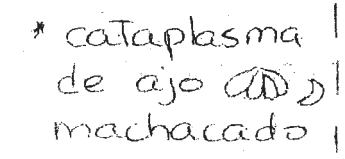 * cataplasma
de ajo
machacado